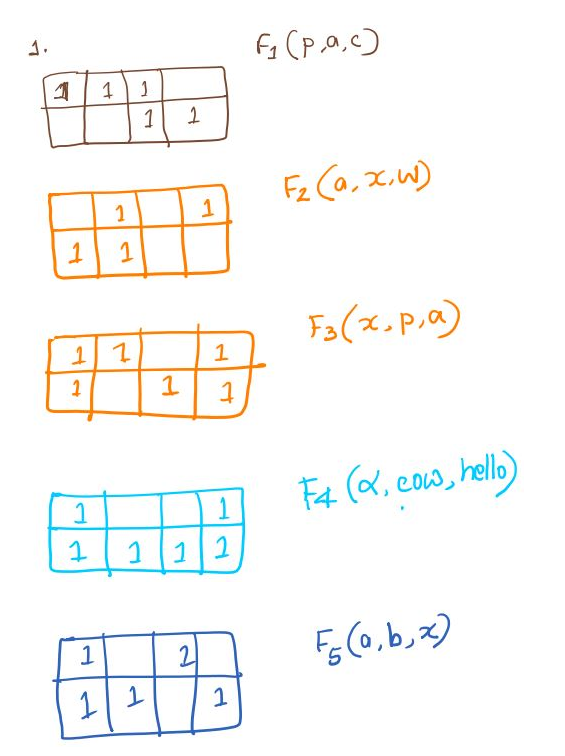 1. F₁(p,a,c)
1 1 1
1 1
F₂(a,x,w)
1 1
1 1
F₃(x,p,a)
1 1 1
1 1 1
F₄(α,cow,hello)
1 1
1 1 1 1
F₅(a,b,x)
1 1
1 1 1